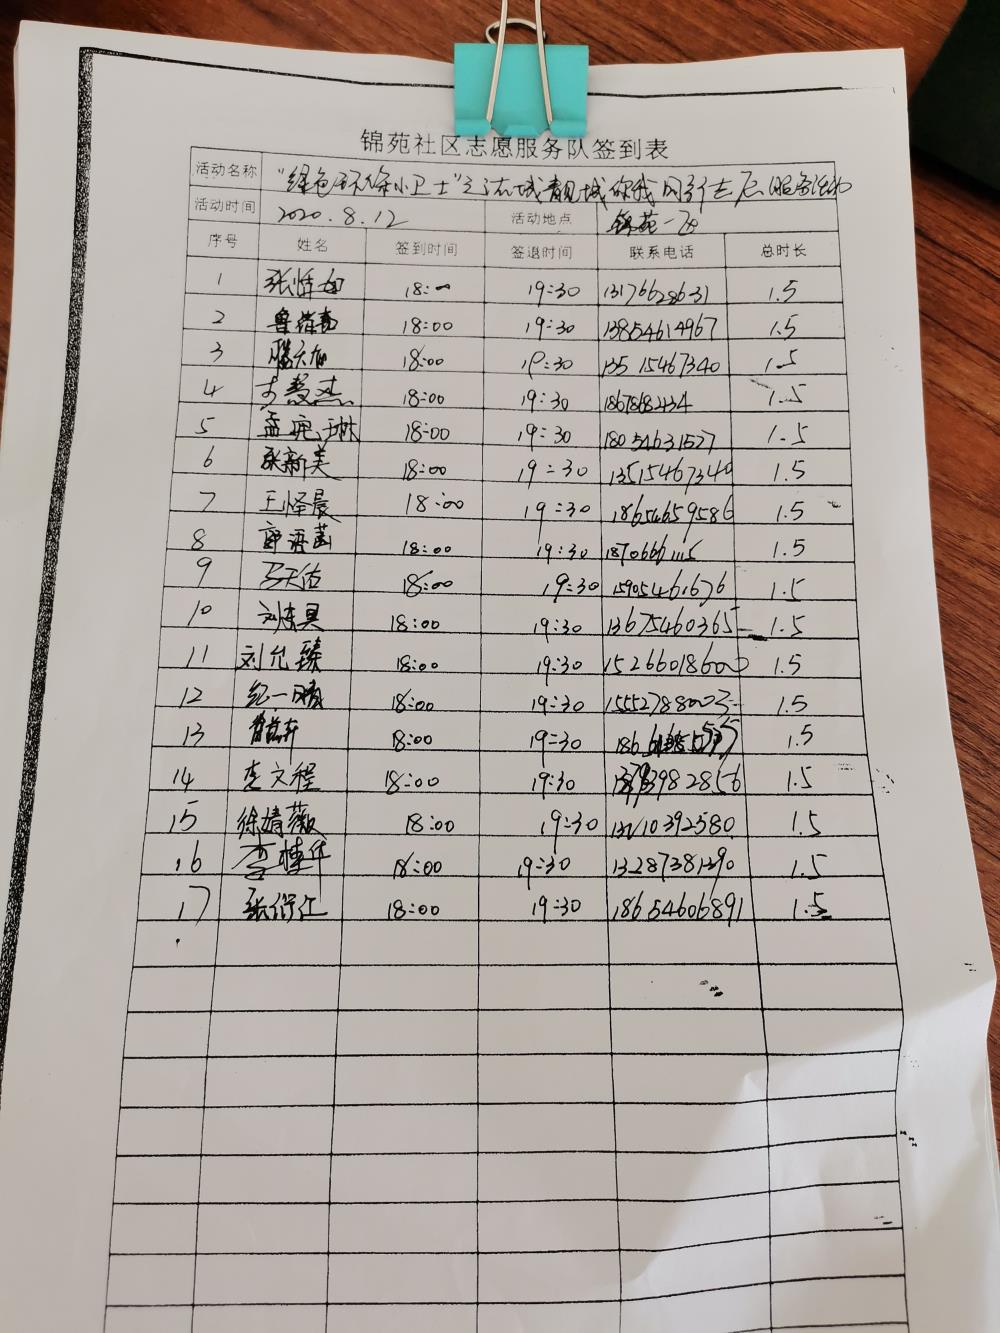 锦苑社区志愿服务队签到表
活动名称 "绿色环保小卫士"之 你我同行志愿服务活动
活动时间 2020.8.12 活动地点 锦苑一区
序号 姓名 签到时间 签退时间 联系电话 总时长
1 张 18:00 19:30 13176628631 1.5
2 鲁 18:00 19:30 13854614967 1.5
3 18:00 19:30 13515467340 1.5
4 18:00 19:30 18678682434 1.5
5 孟琬琳 18:00 19:30 18054631527 1.5
6 张新美 18:00 19:30 13515467340 1.5
7 王怿晨 18:00 19:30 18654659586 1.5
8 18:00 19:30 1.5
9 马天佑 18:00 19:30 15905461676 1.5
10 刘 18:00 19:30 13675460365 1.5
11 刘允臻 18:00 19:30 15266018600 1.5
12 纪一晴 18:00 19:30 15552788003 1.5
13 18:00 19:30 1.5
14 李文程 18:00 19:30 1.5
15 徐婧薇 18:00 19:30 1.5
16 李 18:00 19:30 13287381390 1.5
17 张衍江 18:00 19:30 18654606891 1.5